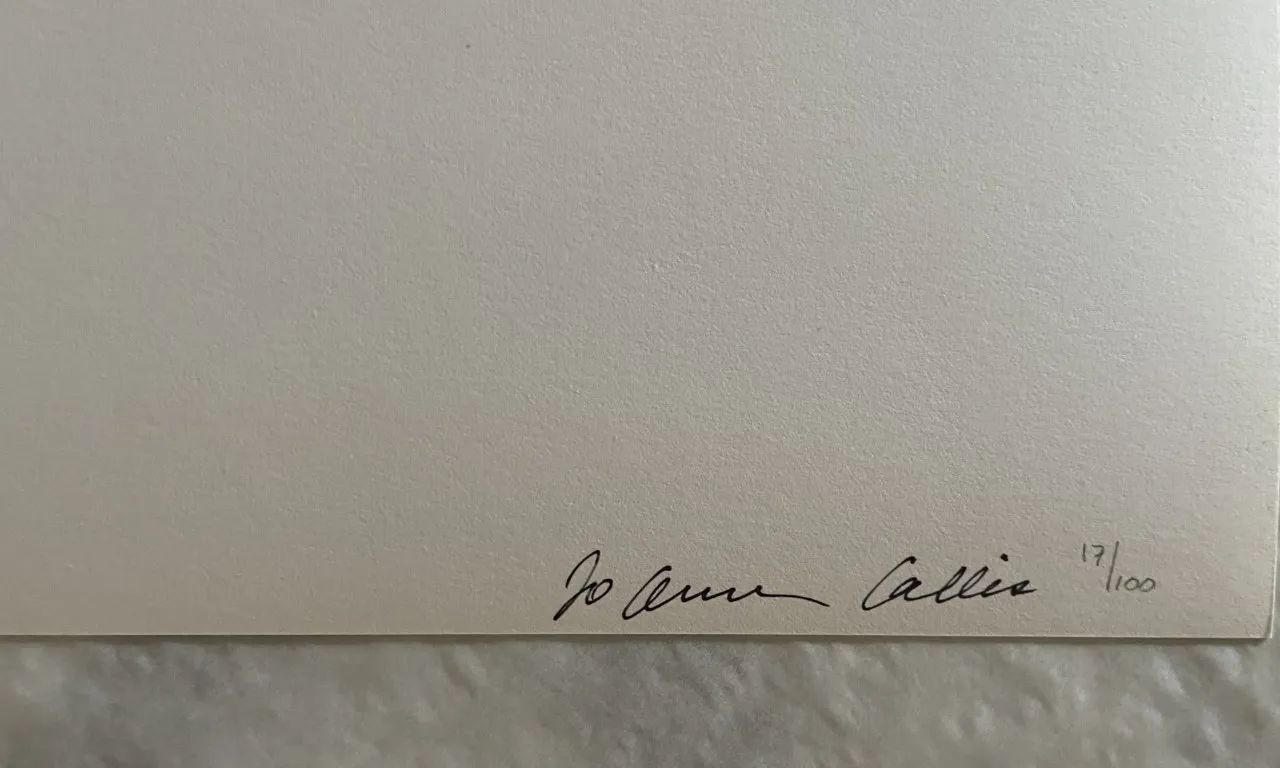 Jo Ann Callis 17/100